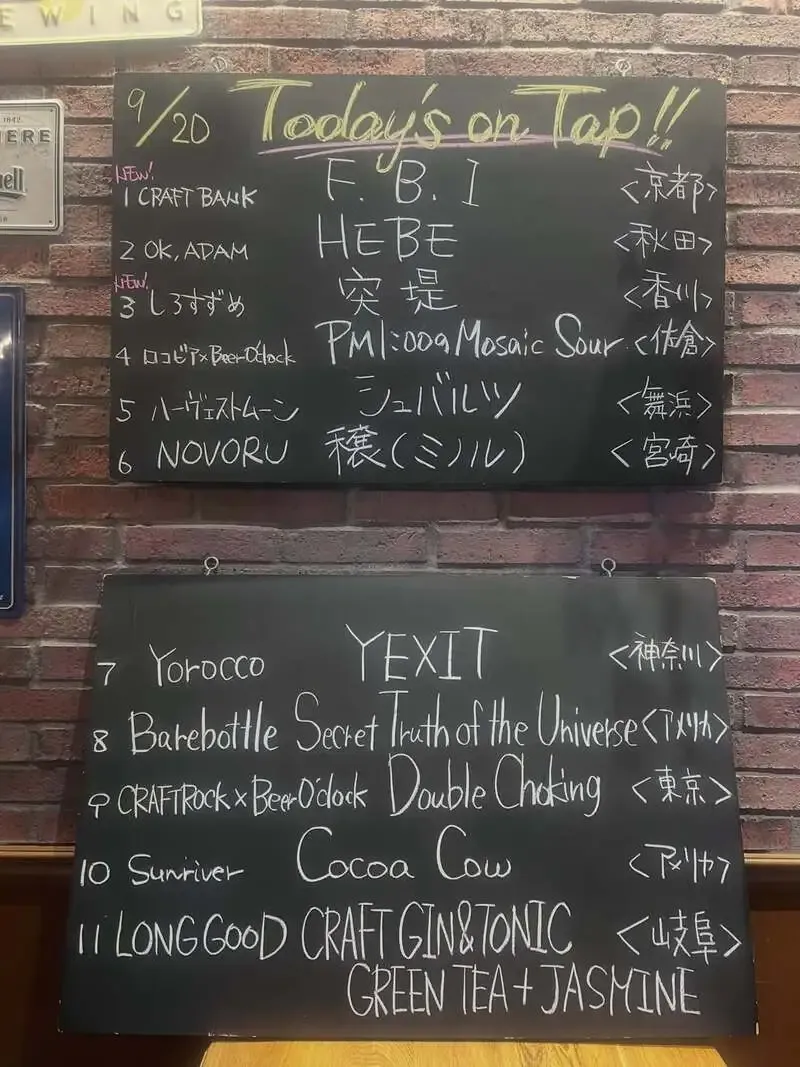 EWING
1842.
9/20 Today's on Tap!!
NEW!
1 CRAFT BANK F.B.I <京都>
2 OK, ADAM HEBE <秋田>
NEW!
3 しろすずめ 突堤 <香川>
4 ロコビア×Beer O'clock PM1:009 Mosaic Sour <佐倉>
5 ハーヴェストムーン シュバルツ <舞浜>
6 NOVORU 穣(ミノル) <宮崎>
7 Yorocco YEXIT <神奈川>
8 Barebottle Secret Truth of the Universe <アメリカ>
9 CRAFTROCK×Beer O'clock Double Choking <東京>
10 Sunriver Cocoa Cow <アメリカ>
11 LONG GOOD CRAFT GIN&TONIC <岐阜>
GREEN TEA + JASMINE